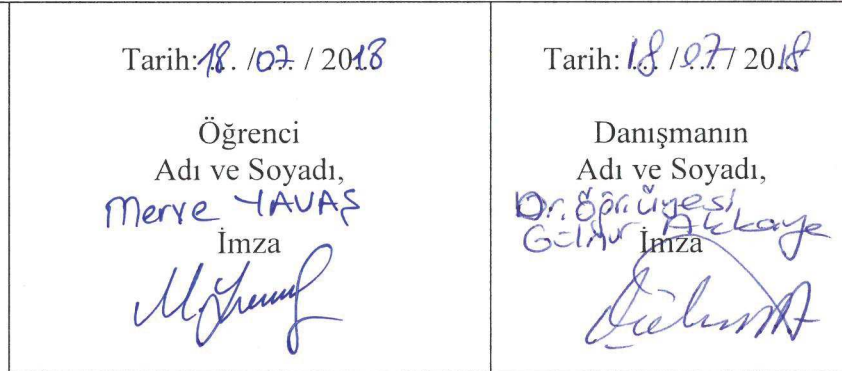 Tarih: 18. /07. / 2018
Öğrenci
Adı ve Soyadı,
Merve YAVAŞ
İmza
Tarih: 18 /07 / 2018
Danışmanın
Adı ve Soyadı,
Dr. Öğr. Üyesi
Gülnur Akkaya
İmza